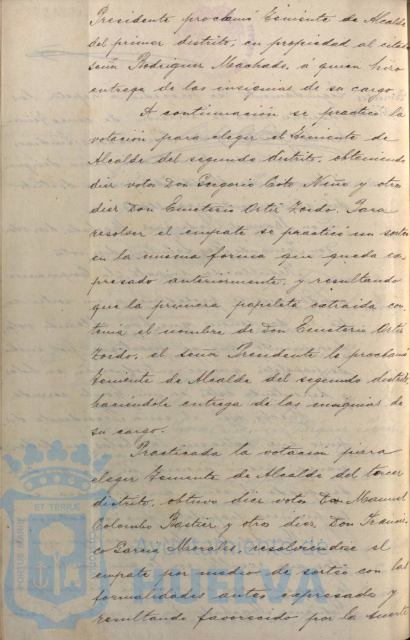 Presidente proclamó Teniente de Alcalde
del primer distrito, en propiedad al citado
señor Rodriguez Machado, á quien hizo
entrega de las insignias de su cargo.
A continuación se practicó la
votación para elegir el Teniente de
Alcalde del segundo distrito, obteniendo
diez votos Don Gregorio Cito Niño y otros
diez Don Emeterio Ortiz Zoido. Para
resolver el empate se practicó un sorteo
en la misma forma que queda ex-
presado anteriormente, y resultando
que la primera papeleta extraida con-
tenia el nombre de Don Emeterio Ortiz
Zoido, el señor Presidente le proclamó
Teniente de Alcalde del segundo distrito,
haciendole entrega de las insignias de
su cargo.
Practicada la votación para
elegir Teniente de Alcalde del tercer
distrito, obtuvo diez votos Don Manuel
Colombo y otros diez Don Francis-
co Garcia Morales, resolviendose el
empate por medio de sorteo con las
formalidades antes expresadas y
resultando favorecido por la suerte
PORTUS MARIS ET TERRÆ
Ayuntamiento de
HUELVA